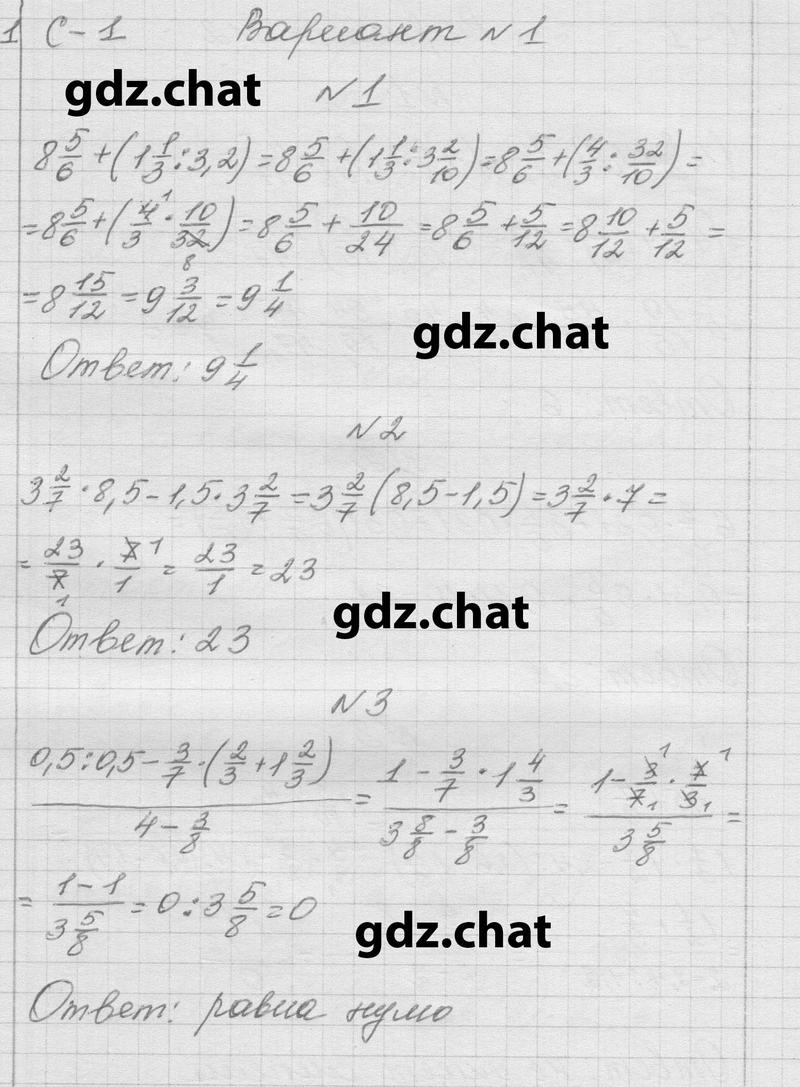 1 С-1 Вариант №1
gdz.chat
№1
8 5/6 + (1 1/3 : 3,2) = 8 5/6 + (1 1/3 : 3 2/10) = 8 5/6 + (4/3 : 32/10) =
= 8 5/6 + (4/3 · 10/32) = 8 5/6 + 10/24 = 8 5/6 + 5/12 = 8 10/12 + 5/12 =
1 8
= 8 15/12 = 9 3/12 = 9 1/4
gdz.chat
Ответ: 9 1/4
№2
3 2/7 · 8,5 - 1,5 · 3 2/7 = 3 2/7 (8,5 - 1,5) = 3 2/7 · 7 =
= 23/7 · 7/1 = 23/1 = 23
1 1
gdz.chat
Ответ: 23
№3
0,5 : 0,5 - 3/7 · (2/3 + 1 2/3) / 4 - 3/8 = 1 - 3/7 · 1 4/3 / 3 8/8 - 3/8 = 1 - 3/7 · 7/3 / 3 5/8 =
1 1 1 1
= 1 - 1 / 3 5/8 = 0 : 3 5/8 = 0
gdz.chat
Ответ: равна нулю